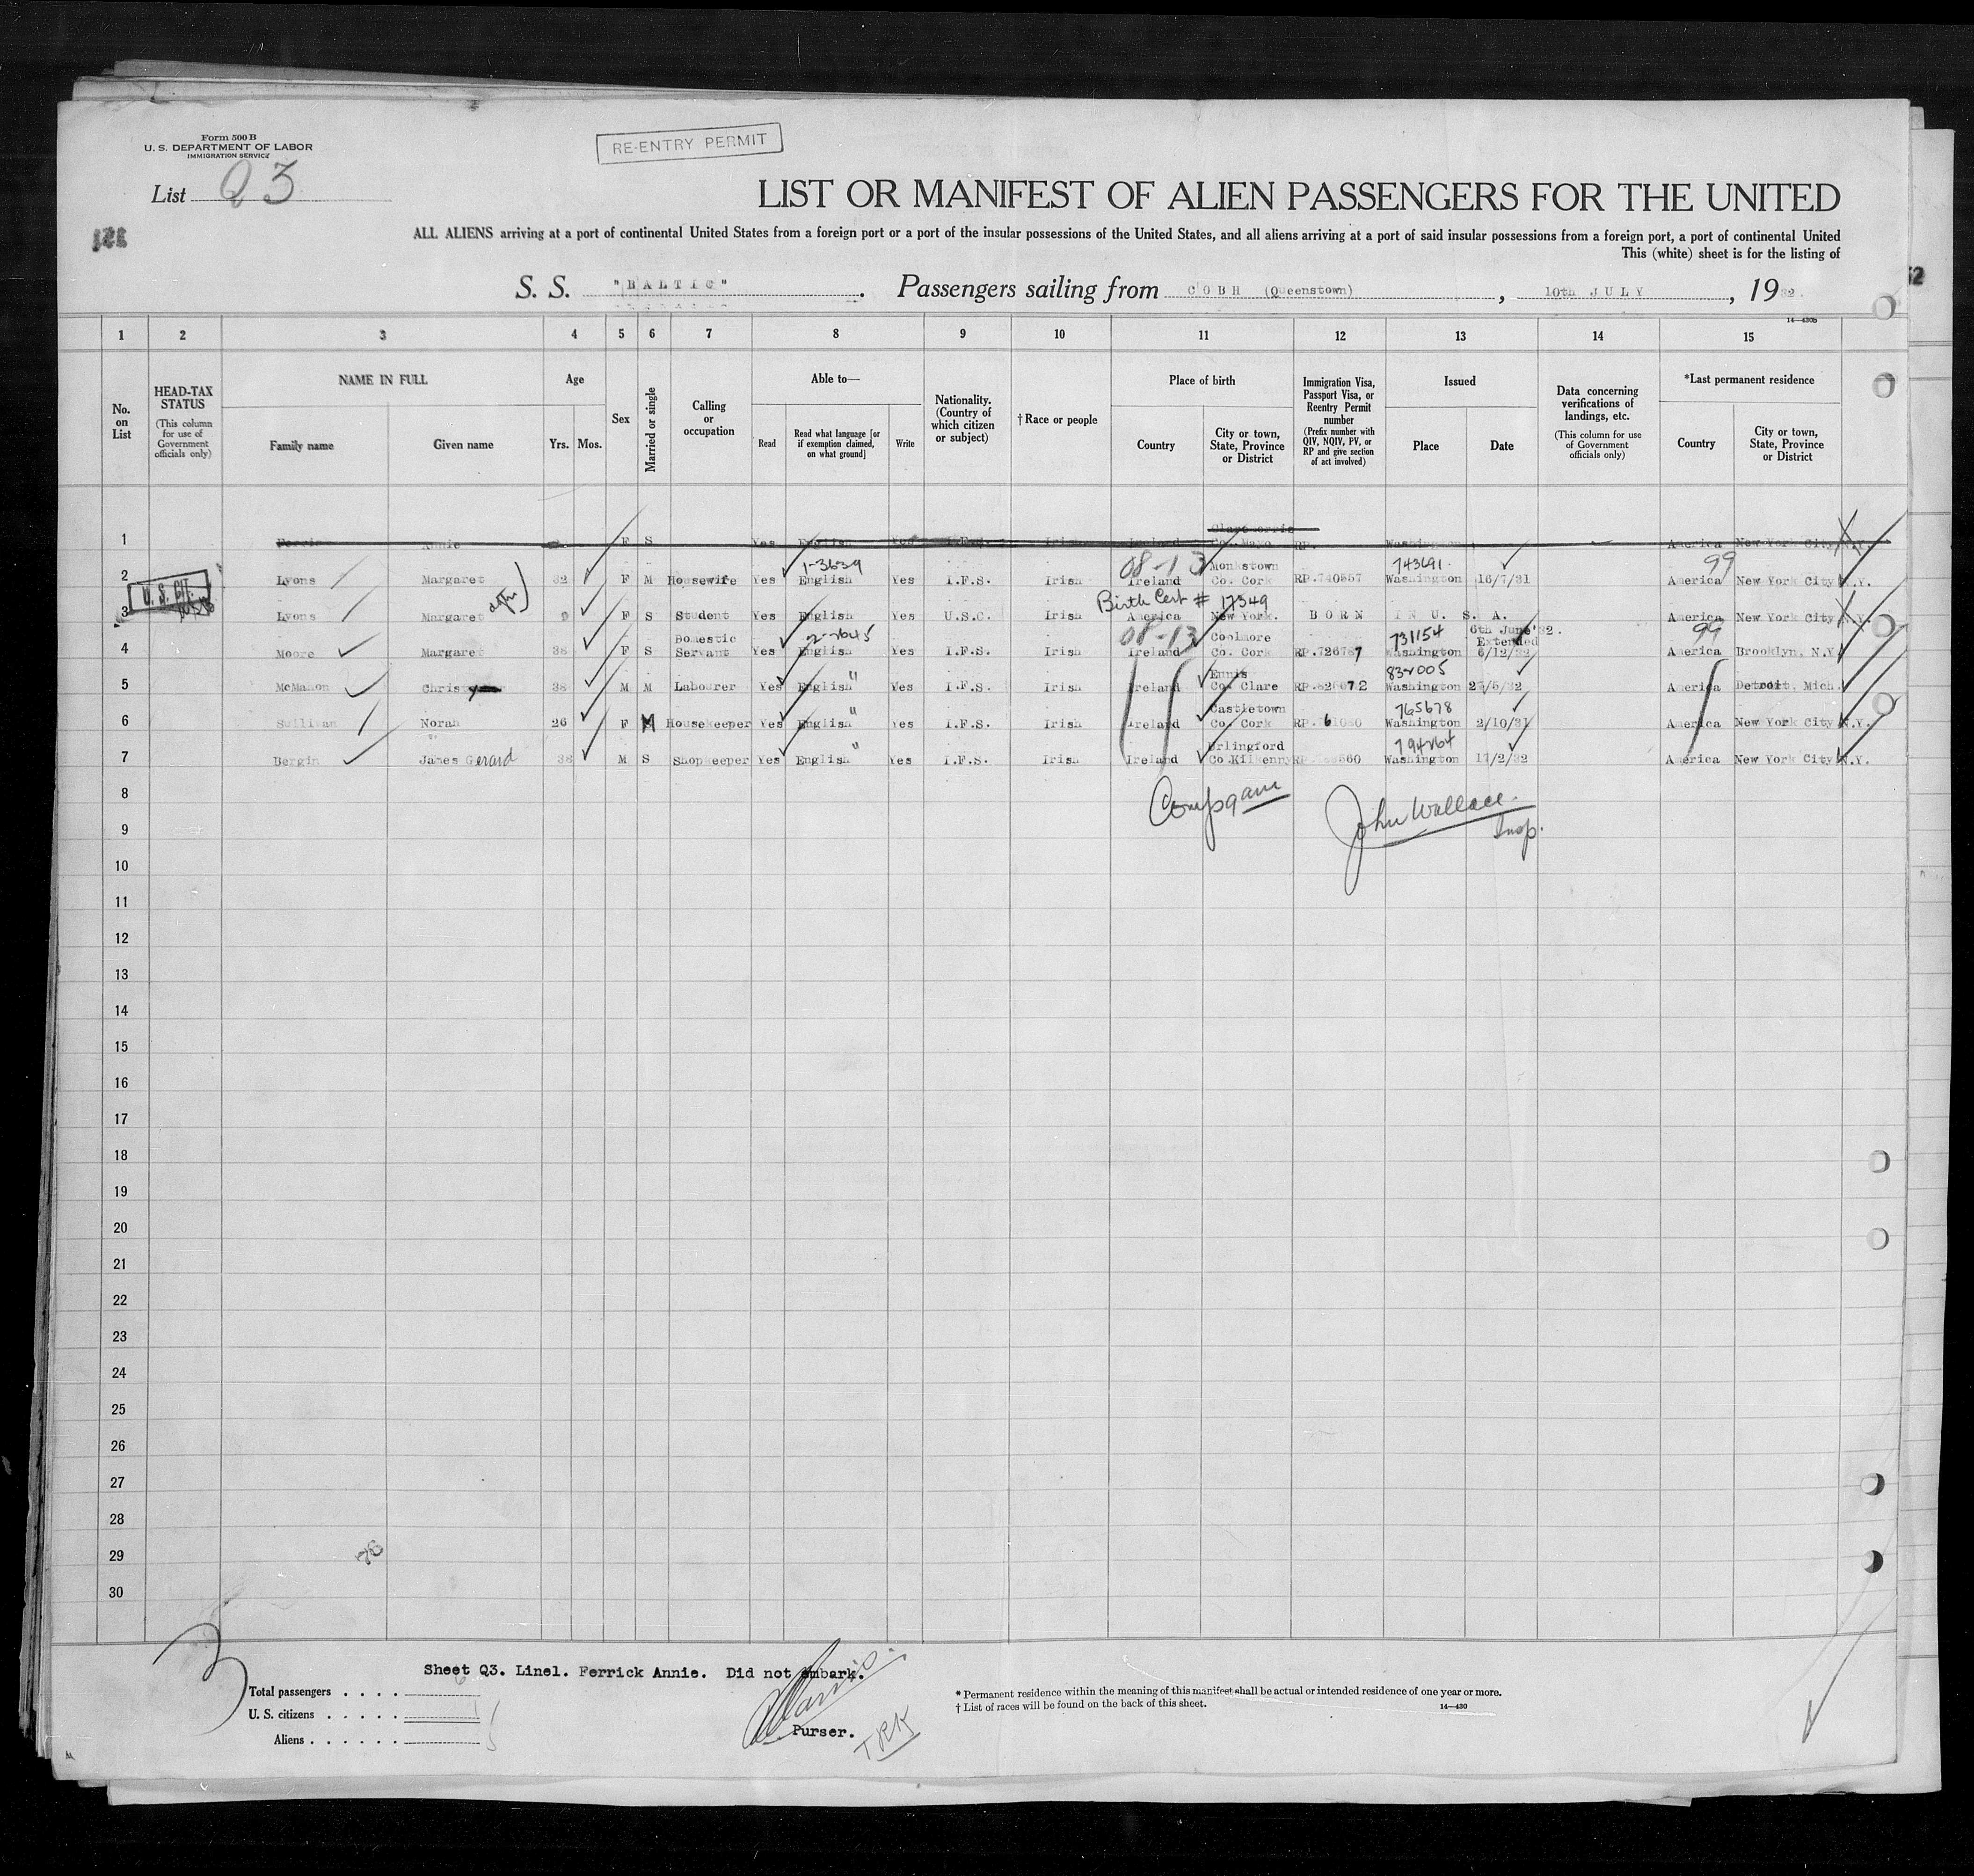 Form 500 B
U. S. DEPARTMENT OF LABOR
IMMIGRATION SERVICE
RE-ENTRY PERMIT
List Q3
LIST OR MANIFEST OF ALIEN PASSENGERS FOR THE UNITED
ALL ALIENS arriving at a port of continental United States from a foreign port or a port of the insular possessions of the United States, and all aliens arriving at a port of said insular possessions from a foreign port, a port of continental United
This (white) sheet is for the listing of
S. S. "BALTIC". Passengers sailing from COBH (Queenstown), 10th JULY, 1932.
14—430b
1 2 3 4 5 6 7 8 9 10 11 12 13 14 15
No. on List
HEAD-TAX STATUS (This column for use of Government officials only)
NAME IN FULL
Family name Given name
Age
Yrs. Mos.
Sex
Married or single
Calling or occupation
Able to—
Read
Read what language [or if exemption claimed, on what ground]
Write
Nationality. (Country of which citizen or subject)
† Race or people
Place of birth
Country
City or town, State, Province or District
Immigration Visa, Passport Visa, or Reentry Permit number (Prefix number with QIV, NQIV, PV, or RP and give section of act involved)
Issued
Place Date
Data concerning verifications of landings, etc. (This column for use of Government officials only)
*Last permanent residence
Country
City or town, State, Province or District
1 Annie F S Yes English Yes I.F.S. Irish Ireland Claremorris Co. Mayo RP. Washington America New York City N.Y.
1-3639 08-13 Monkstown 743691 99
2 Lyons Margaret 32 F M Housewife Yes English Yes I.F.S. Irish Ireland Co. Cork RP.740557 Washington 16/7/31 America New York City N.Y.
U. S. CIT.
Birth Cert # 17349
3 Lyons Margaret 9 F S Student Yes English Yes U.S.C. Irish America New York. BORN IN U. S. A. America New York City N.Y.
Domestic 2-2645 08-13 Coolmore 731154 6th June'32. Extended 99
4 Moore Margaret 38 F S Servant Yes English Yes I.F.S. Irish Ireland Co. Cork RP.726787 Washington 6/12/32 America Brooklyn, N.Y.
Ennis 832005
5 McMahon Christy 38 M M Labourer Yes English" Yes I.F.S. Irish Ireland Co. Clare Washington America Detroit, Mich.
Castletown 765678
6 Sullivan Norah 26 F M Housekeeper Yes English" Yes I.F.S. Irish Ireland Co. Cork Washington 2/10/31 America New York City N.Y.
Urlingford 794264
7 Bergin James Gerard 38 M S Shopkeeper Yes English" Yes I.F.S. Irish Ireland Co.Kilkenny Washington 17/2/32 America New York City N.Y.
8
John Wallace.
9
Insp.
10
11
12
13
14
15
16
17
18
19
20
21
22
23
24
25
26
27
28
29
30
Sheet Q3. Line1. Ferrick Annie. Did not embark.
Total passengers . . . .
U. S. citizens . . . . .
Aliens . . . . . .
Purser.
TRK
* Permanent residence within the meaning of this manifest shall be actual or intended residence of one year or more.
† List of races will be found on the back of this sheet.
14—430